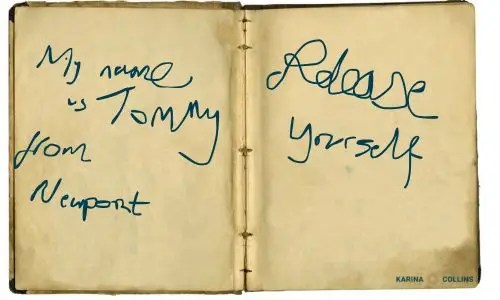 My name
is Tommy
from
Newport
Release
Yourself
KARINA COLLINS